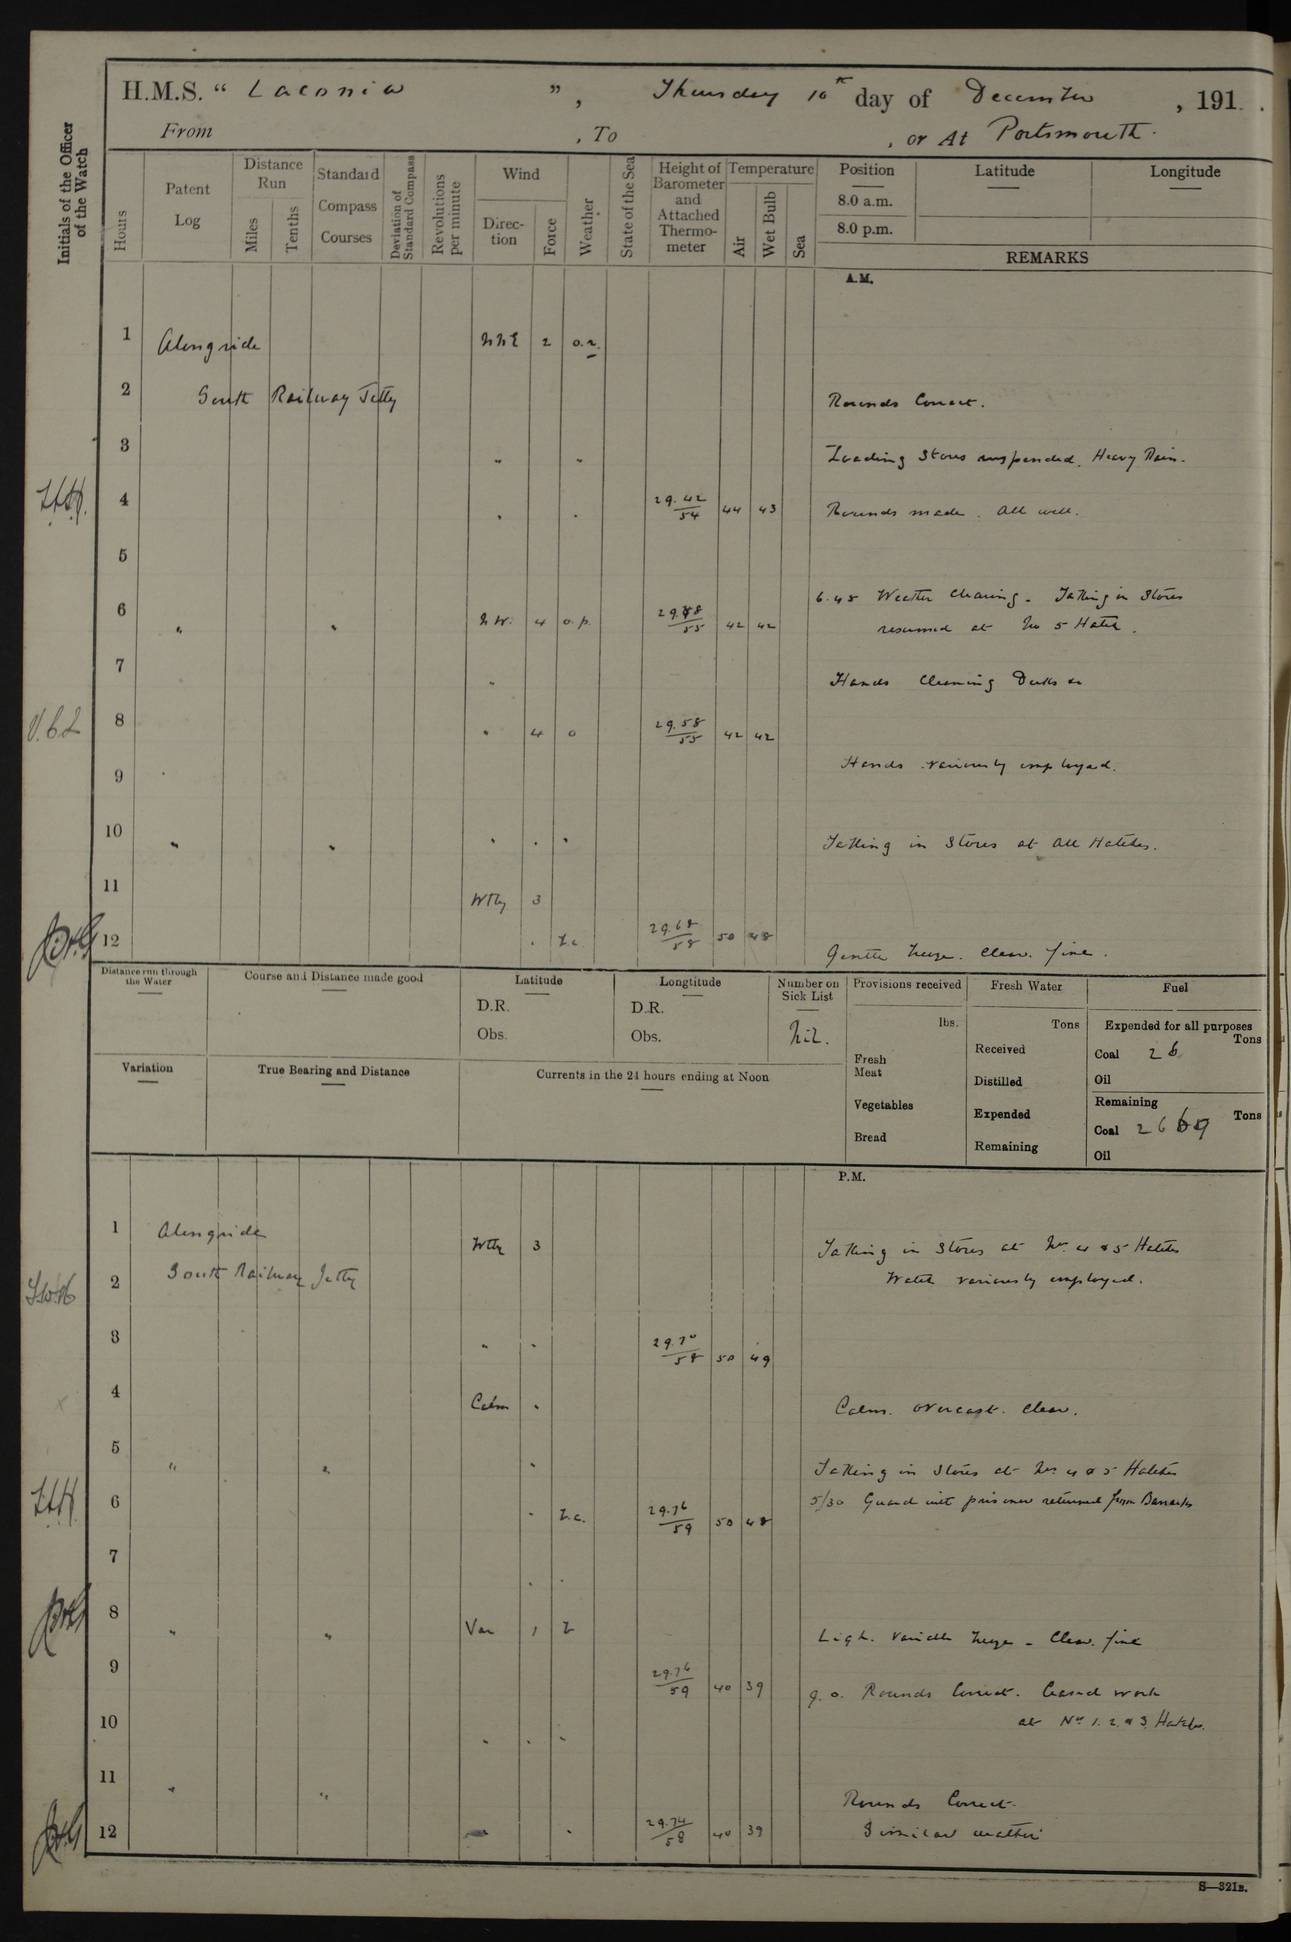 H.M.S. “ Laconia ”, Thursday 10th day of December , 191 .
From , To , or At Portsmouth.
Initials of the Officer of the Watch
Hours
Patent Log
Distance Run
Miles
Tenths
Standard Compass Courses
Deviation of Standard Compass
Revolutions per minute
Wind
Direction
Force
Weather
State of the Sea
Height of Barometer and Attached Thermometer
Temperature
Air
Wet Bulb
Sea
Position
8.0 a.m.
8.0 p.m.
Latitude
Longitude
REMARKS
A.M.
1 Alongside NNE 2 o.r.
2 South Railway Jetty Rounds Correct.
3 " " Loading Stores suspended. Heavy Rain.
4 " " 29.42/54 44 43 Rounds made. All well.
5
6.45 Weather Clearing - Taking in Stores
6 " " N.W. 4 o.p. 55 42 42 resumed at No 5 Hatch.
7 " Hands Cleaning Decks &c
8 " 4 o 29.58/55 42 42
9 Hands variously employed.
10 " " " " " Taking in Stores at all Hatches.
11 Wtly 3
12 " b.c. 29.68/58 50 48 Gentle breeze. Clear. fine.
Distance run through the Water
Course and Distance made good
Latitude
D.R.
Obs.
Longtitude
D.R.
Obs.
Number on Sick List
Nil.
Provisions received
lbs.
Fresh Meat
Vegetables
Bread
Fresh Water
Tons
Received
Distilled
Expended
Remaining
Fuel
Expended for all purposes
Tons
Coal 26
Oil
Remaining
Tons
Coal
Oil
Variation
True Bearing and Distance
Currents in the 24 hours ending at Noon
P.M.
1 Alongside Wtly 3 Taking in Stores at Nos 4 & 5 Hatches
2 South Railway Jetty Watch variously employed.
3 " " 29.70/58 50 49
4 Calm " Calm. overcast. clear.
5 " " " Taking in Stores at Nos 4 & 5 Hatches
5/30 Guard with prisoner returned from Barracks
6 " b.c. 29.76/59 50 48
7 " "
8 " " Var 1 b Light. variable breeze - Clear. fine
9 29.76/59 40 39 9.0. Rounds Correct. Ceased work
10 " " " at Nos 1. 2. & 3. Hatches.
11 " " Rounds Correct.
12 " " 29.74/58 40 39 Similar weather
S—321B.